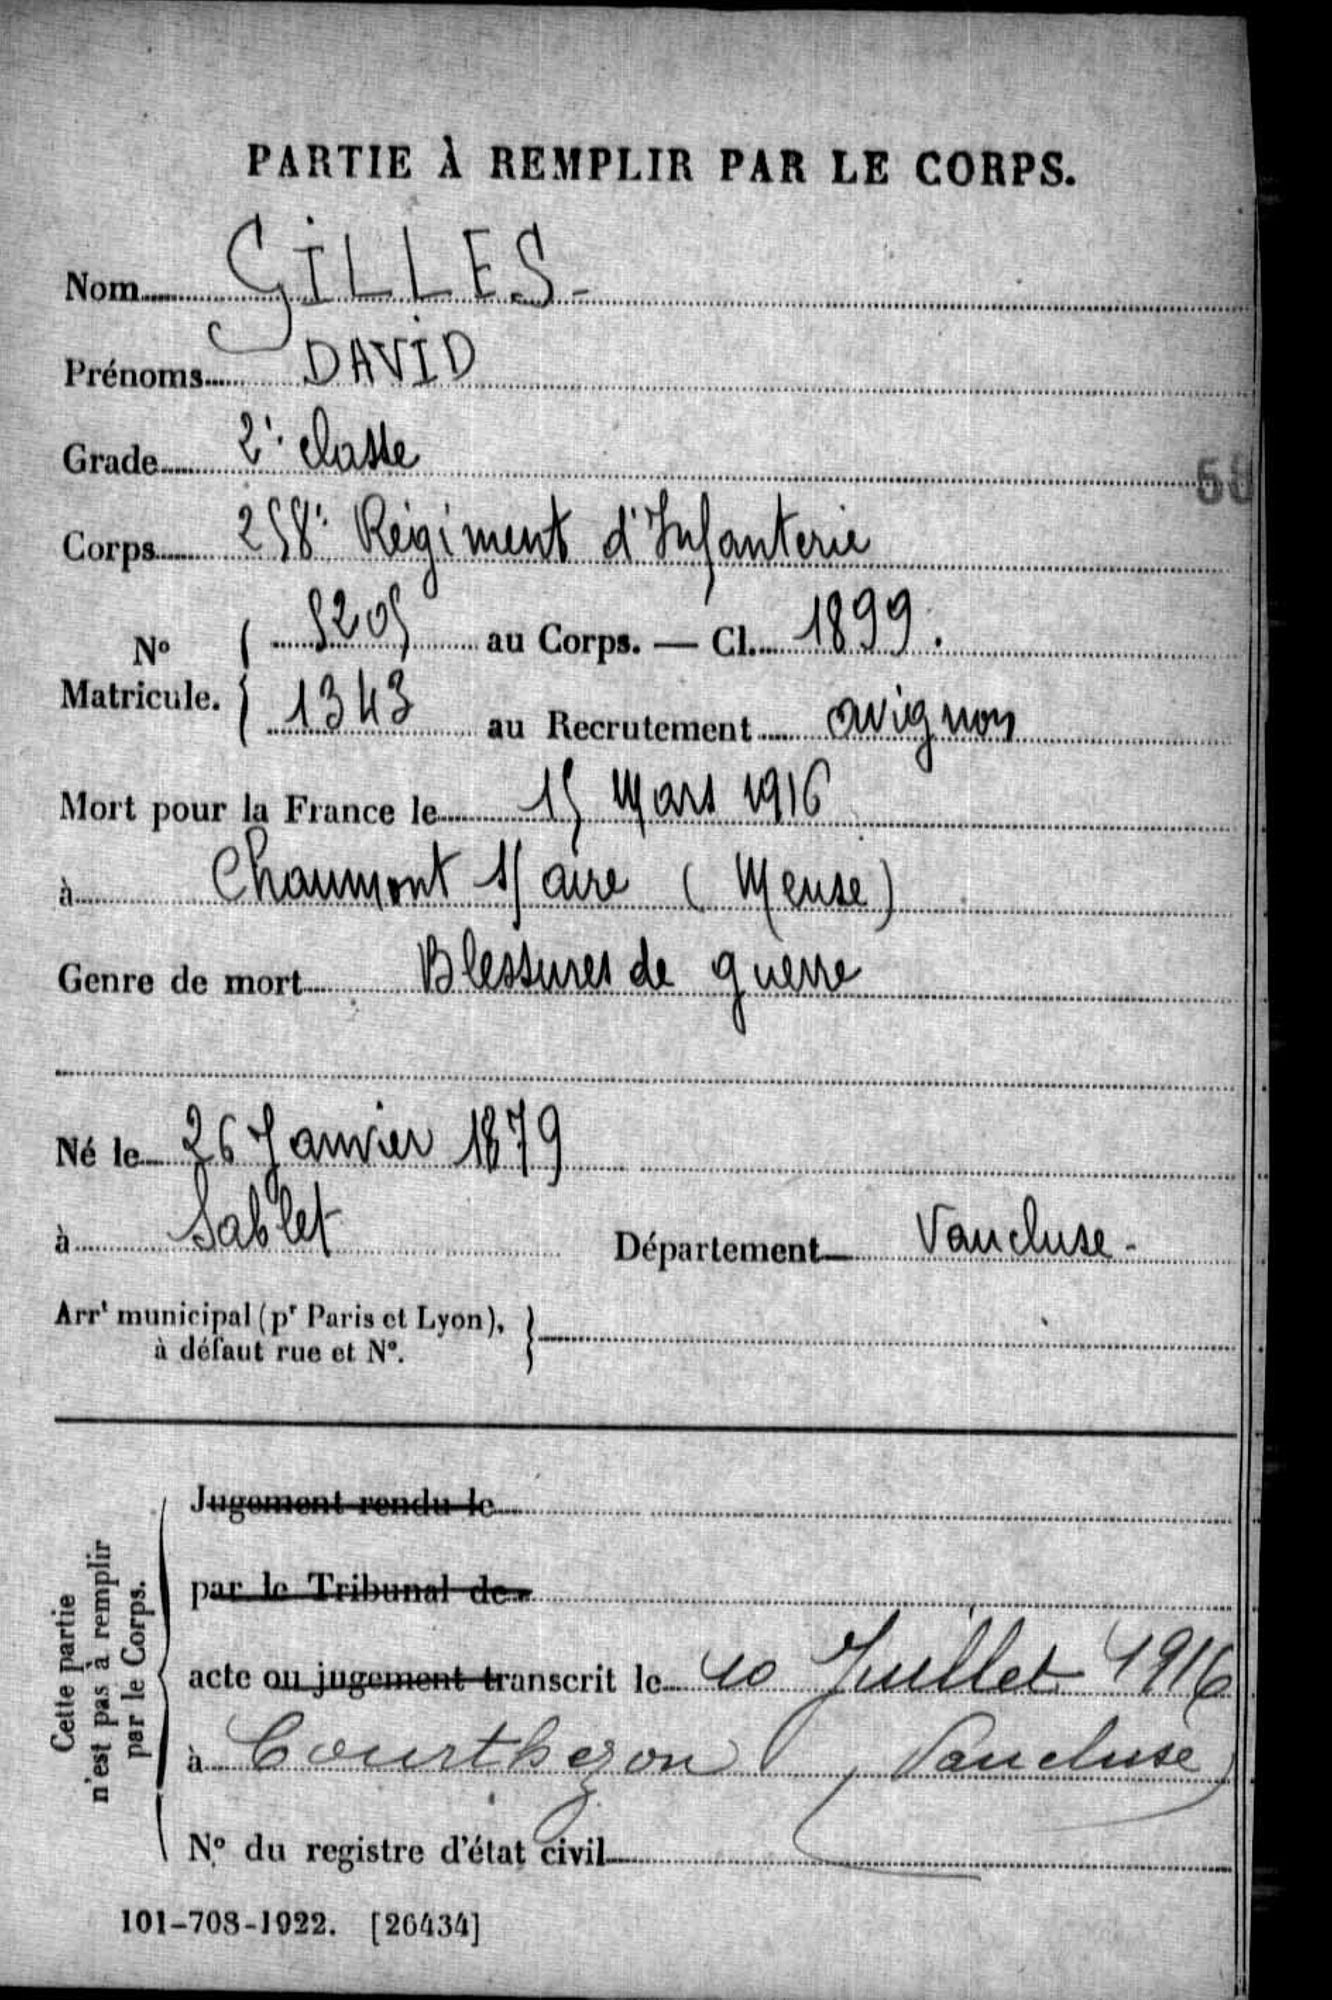 PARTIE À REMPLIR PAR LE CORPS.
Nom GILLES-
Prénoms DAVID
Grade 2e classe
Corps 258e Régiment d'Infanterie
58
No Matricule. { 5205 au Corps. — Cl. 1899.
{ 1343 au Recrutement avignon
Mort pour la France le 15 Mars 1916
à Chaumont s/ aire (Meuse)
Genre de mort Blessures de guerre
Né le 26 Janvier 1879
à Sablet Département Vaucluse-
Arrt municipal (pr Paris et Lyon),
à défaut rue et No.
Cette partie
n'est pas à remplir
par le Corps.
Jugement rendu le
par le Tribunal de
acte ou jugement transcrit le 10 Juillet 1916
à Courthezon (Vaucluse)
No du registre d'état civil
101-708-1922. [26434]